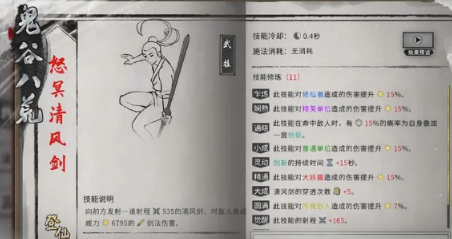 鬼谷八荒
怒冥清风剑
登仙
武技
技能说明
向前方发射一道射程 935的清风剑，对敌人造成
威力 6795的 剑法伤害。
技能冷却： 0.4秒
施法消耗：无消耗
效果预览
技能修炼（11）
此技能对修仙者造成的伤害提升 15%。
娴熟 此技能对精英单位造成的伤害提升 15%。
此技能在命中敌人时，有 15%的概率为自身叠加
一层剑斩。
小成 此技能对普通单位造成的伤害提升 15%。
灵动 剑斩的持续时间 +15秒。
精通 此技能对大妖兽造成的伤害提升 15%。
大成 清风剑的穿透次数 +5。
圆满 此技能对所有敌人造成的伤害提升 7%。
觉醒 此技能的射程 +165。